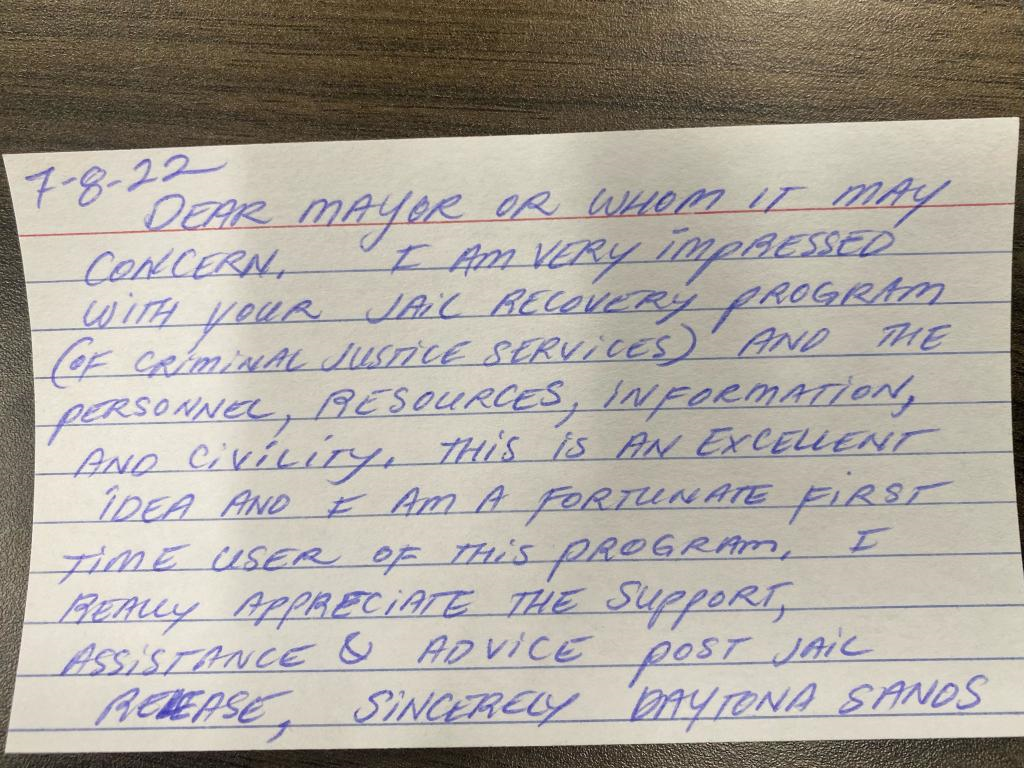 7-8-22
DEAR MAYOR OR WHOM IT MAY
CONCERN. I AM VERY IMPRESSED
WITH YOUR JAIL RECOVERY PROGRAM
(OF CRIMINAL JUSTICE SERVICES) AND THE
PERSONNEL, RESOURCES, INFORMATION,
AND CIVILITY. THIS IS AN EXCELLENT
IDEA AND I AM A FORTUNATE FIRST
TIME USER OF THIS PROGRAM. I
REALLY APPRECIATE THE SUPPORT,
ASSISTANCE & ADVICE POST JAIL
RELEASE, SINCERELY DAYTONA SANDS